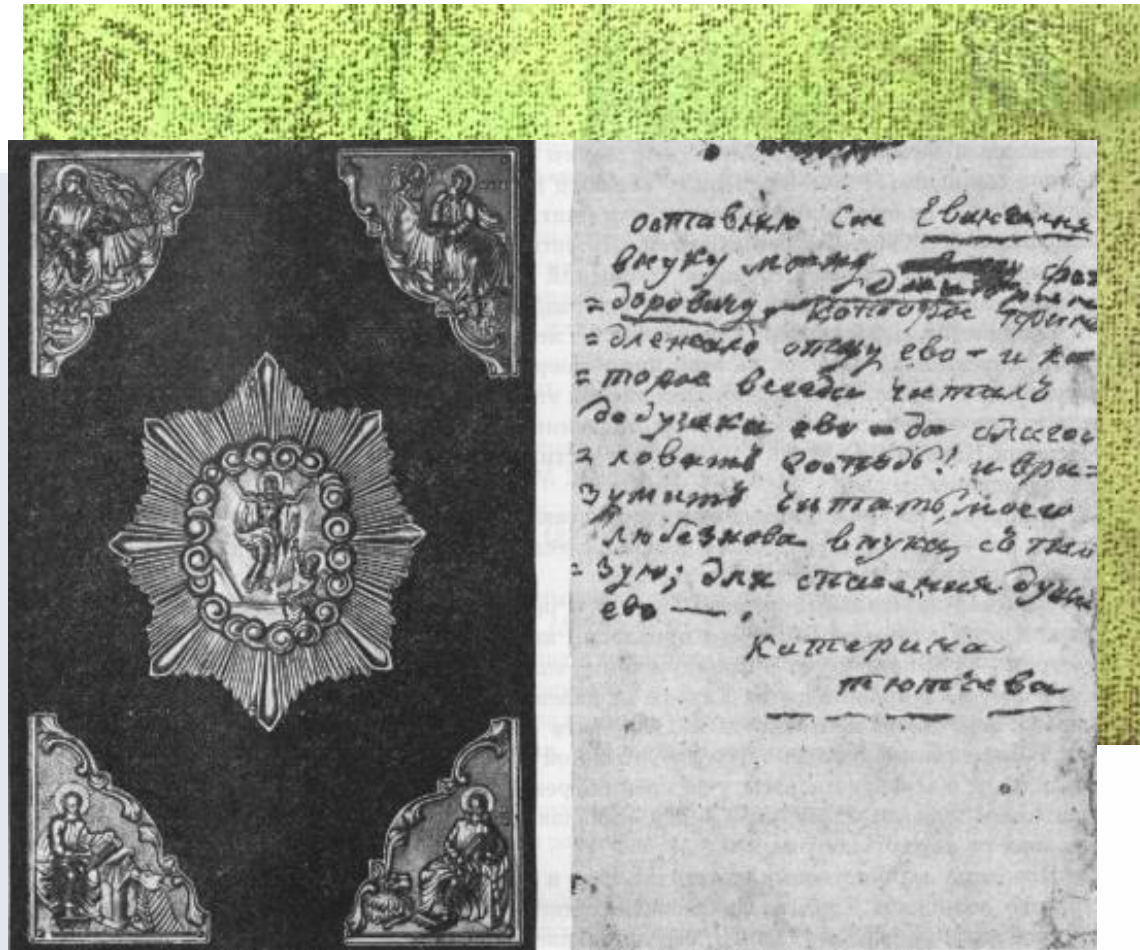 оставляю сие Евангелия
внуку моему
=доровичу, которое прин
=длежало отцу ево – и ко
=торое всегда читалъ
дедушка ево – да благос
=ловитъ господь! и вра=
зумитъ читать, моего
любезнова внука, съ пол
=зую; для спасения души
ево — .
Катерина
тютчева